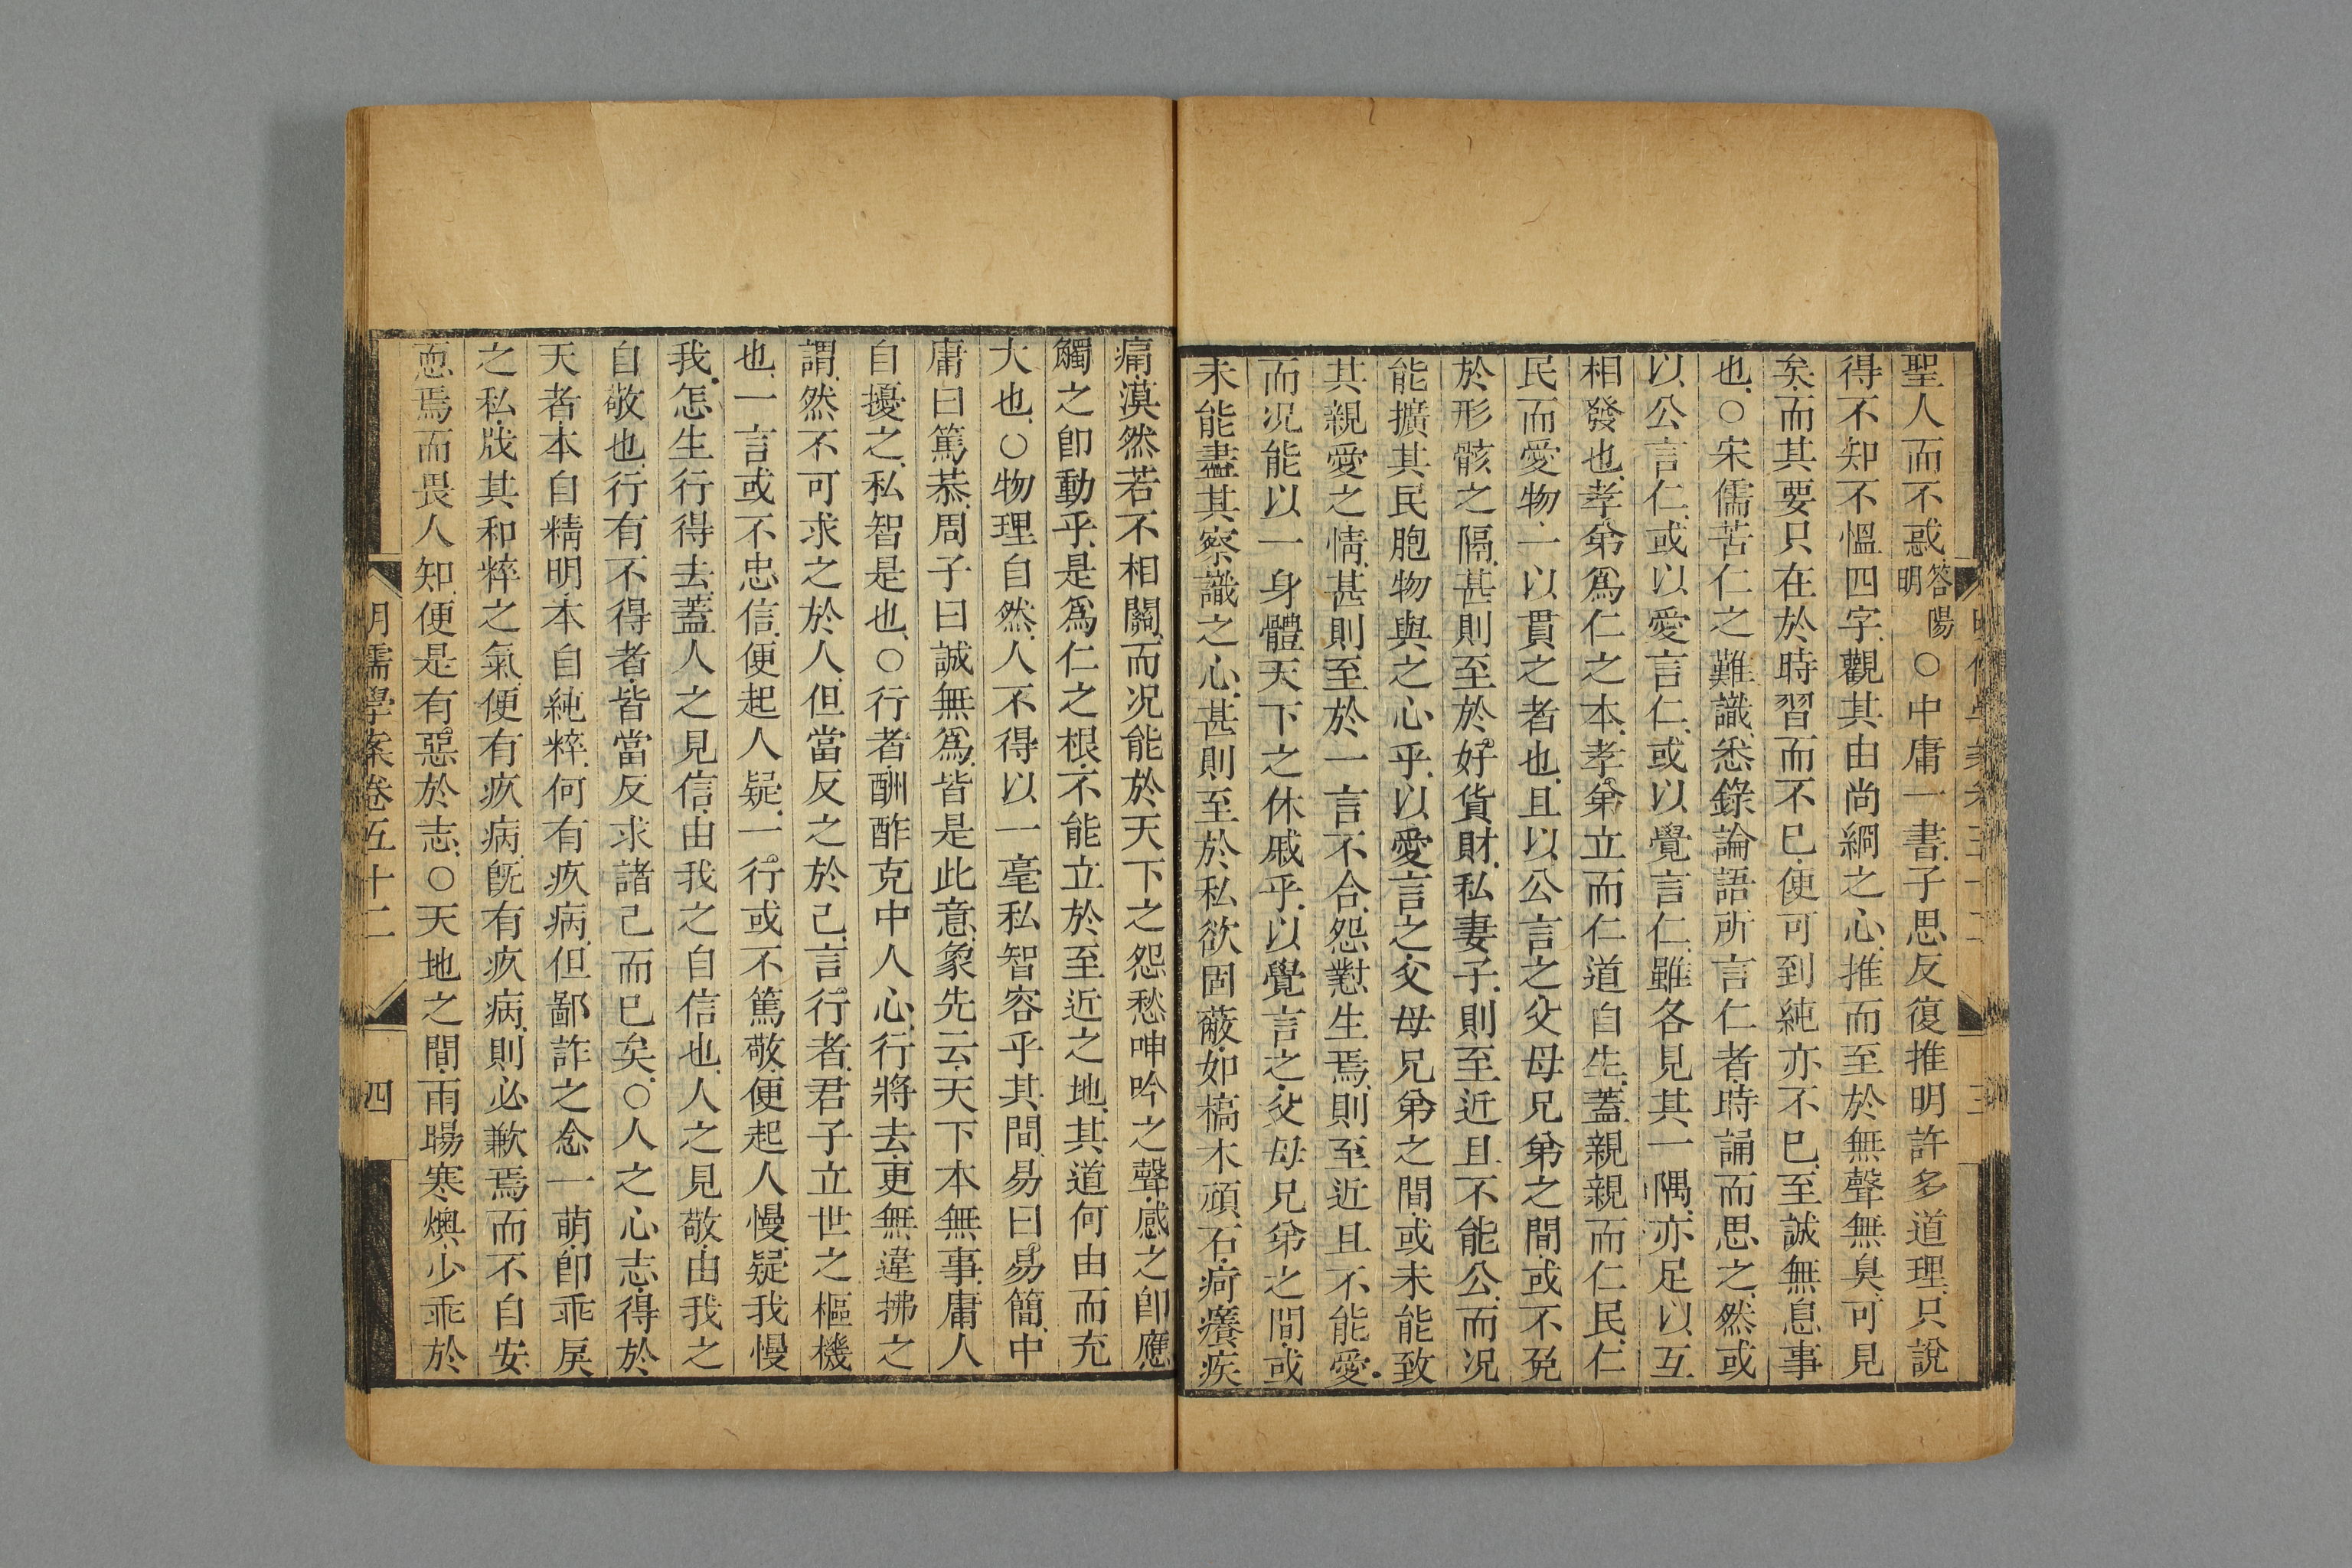 聖人而不惑答陽明○中庸一書子思反復推明許多道理只說
得不知不慍四字觀其由尚絅之心推而至於無聲無臭可見
矣而其要只在於時習而不已便可到純亦不已至誠無息事
也○宋儒苦仁之難識悉錄論語所言仁者時誦而思之然或
以公言仁或以愛言仁或以覺言仁雖各見其一隅亦足以互
相發也孝弟爲仁之本孝弟立而仁道自生蓋親親而仁民仁
民而愛物一以貫之者也且以公言之父母兄弟之間或不免
於形骸之隔甚則至於好貨財私妻子則至近且不能公而况
能擴其民胞物與之心乎以愛言之父母兄弟之間或未能致
其親愛之情甚則至於一言不合怨懟生焉則至近且不能愛
而况能以一身體天下之休戚乎以覺言之父母兄弟之間或
未能盡其察識之心甚則至於私欲固蔽如槁木頑石疴癢疾
痛漠然若不相關而况能於天下之怨愁呻吟之聲感之卽應
觸之卽動乎是爲仁之根不能立於至近之地其道何由而充
大也○物理自然人不得以一毫私智容乎其間易曰易簡中
庸曰篤恭周子曰誠無爲皆是此意象先云天下本無事庸人
自擾之私智是也○行者酬酢克中人心行將去更無違拂之
謂然不可求之於人但當反之於己言行者君子立世之樞機
也一言或不忠信便起人疑一行或不篤敬便起人慢疑我慢
我怎生行得去蓋人之見信由我之自信也人之見敬由我之
自敬也行有不得者皆當反求諸己而已矣○人之心志得於
天者本自精明本自純粹何有疚病但鄙詐之念一萌卽乖戾
之私戕其和粹之氣便有疚病旣有疚病則必歉焉而不自安
恧焉而畏人知便是有惡於志○天地之間雨暘寒燠少乖於
明儒學案卷五十二
四